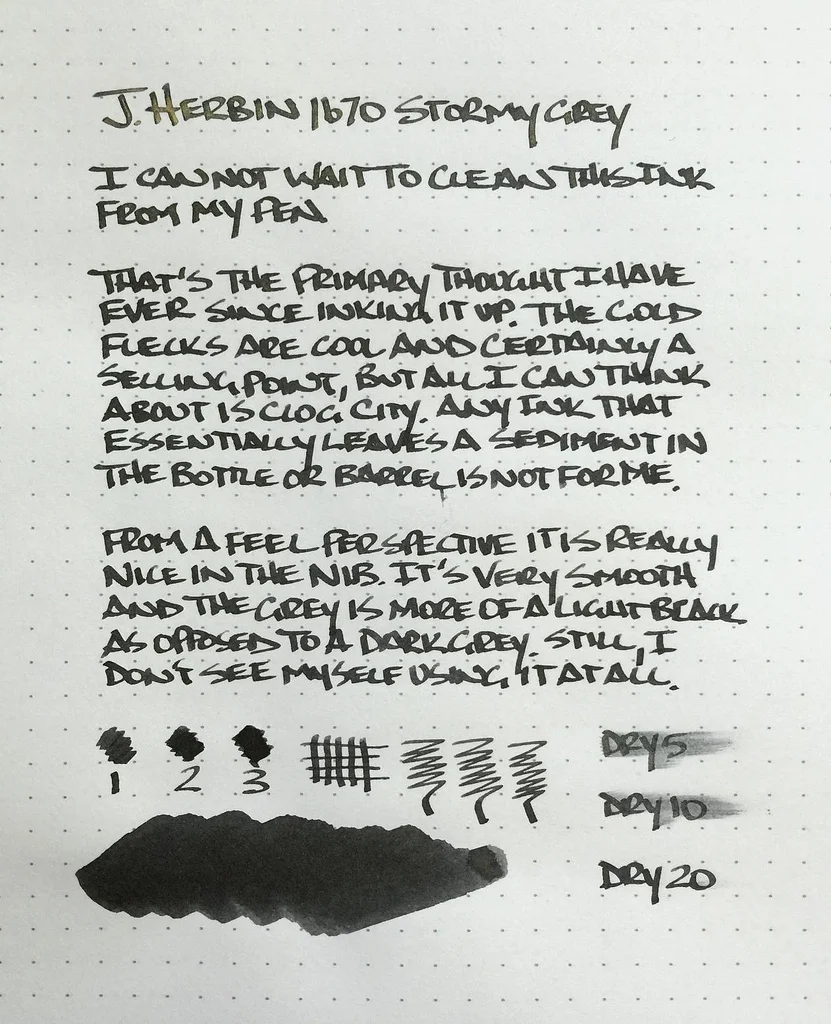 J. HERBIN 1670 STORMY GREY
I CAN NOT WAIT TO CLEAN THIS INK
FROM MY PEN
THAT'S THE PRIMARY THOUGHT I HAVE
EVER SINCE INKING IT UP. THE GOLD
FLECKS ARE COOL AND CERTAINLY A
SELLING POINT, BUT ALL I CAN THINK
ABOUT IS CLOG CITY. ANY INK THAT
ESSENTIALLY LEAVES A SEDIMENT IN
THE BOTTLE OR BARREL IS NOT FOR ME.
FROM A FEEL PERSPECTIVE IT IS REALLY
NICE IN THE NIB. IT'S VERY SMOOTH
AND THE GREY IS MORE OF A LIGHT BLACK
AS OPPOSED TO A DARK GREY. STILL, I
DON'T SEE MYSELF USING IT AT ALL.
1 2 3
DRY 5
DRY 10
DRY 20